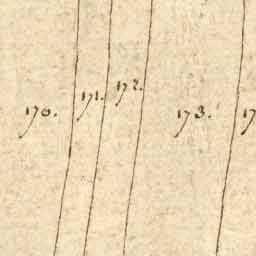 170.
171.
172.
173.